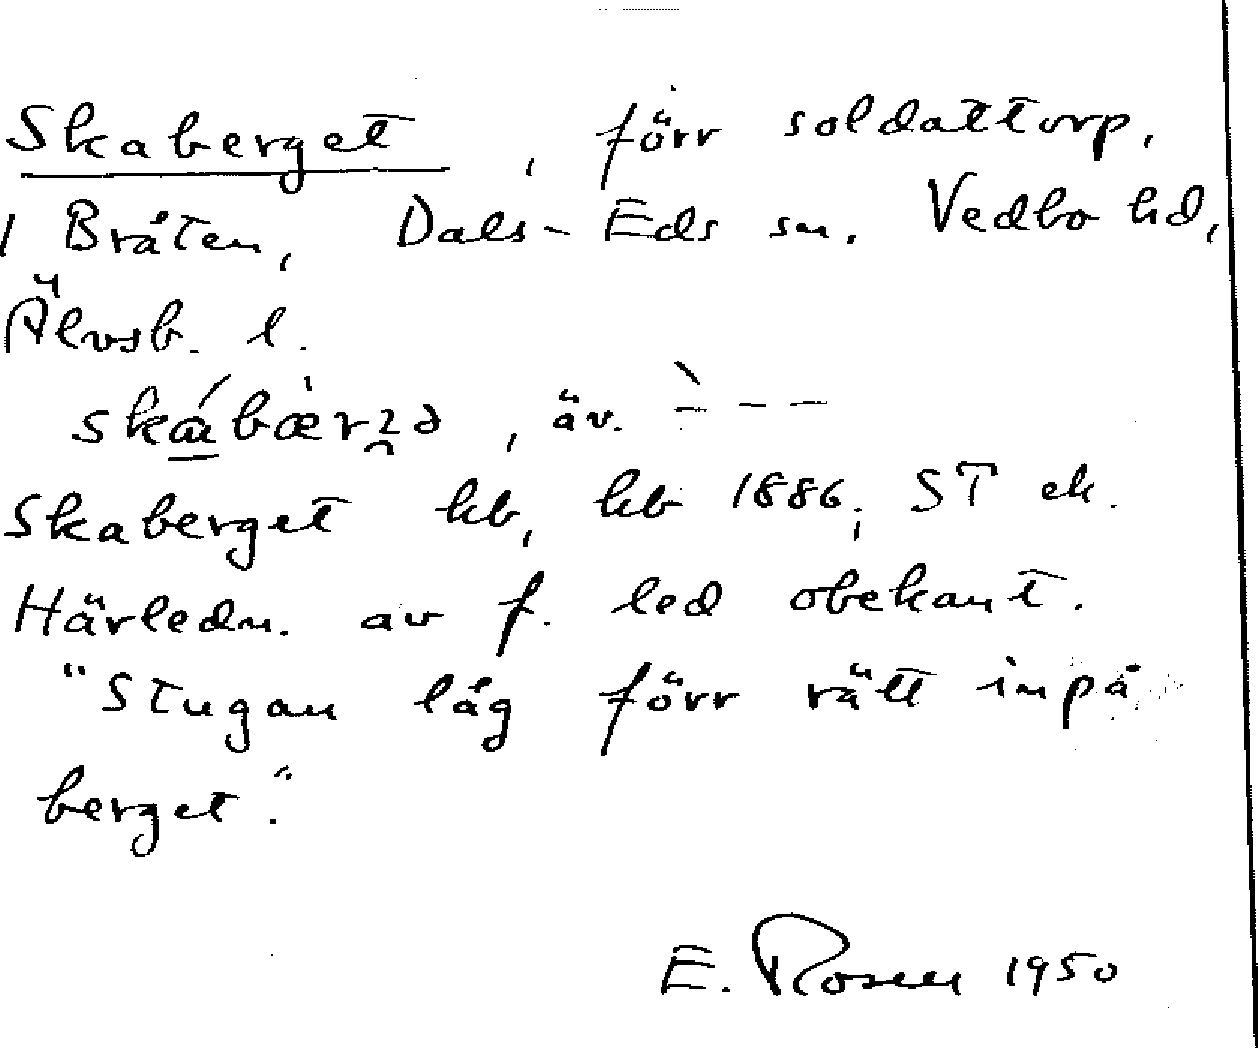 Skaberget, förr soldattorp,
1 Bråten, Dals-Eds sn. Vedbo hd,
Älvsb. l.
, äv. ` - - -
Skaberget kb, kb 1886; ST ek.
Härledn. av f. led obekant.
"Stugan låg förr rätt inpå
berget."
E. Rosen 1950